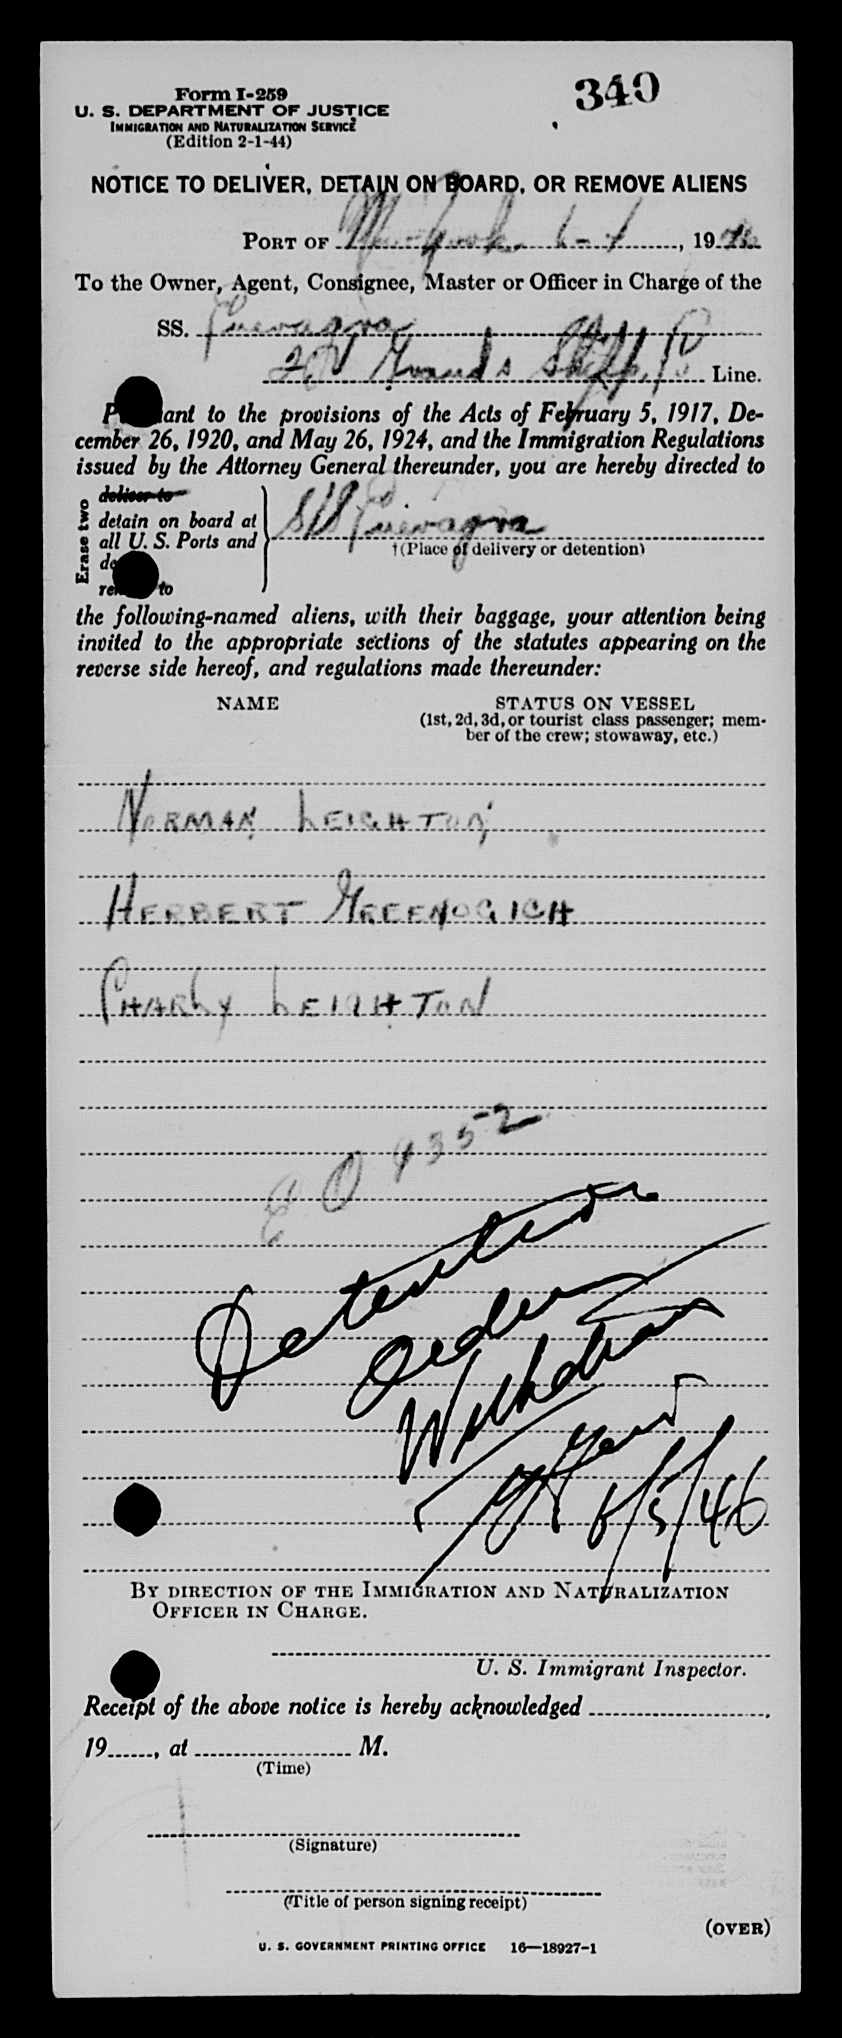 340
Form I-259
U. S. DEPARTMENT OF JUSTICE
IMMIGRATION AND NATURALIZATION SERVICE
(Edition 2-1-44)
NOTICE TO DELIVER, DETAIN ON BOARD, OR REMOVE ALIENS
PORT OF New York 6-1, 1946
To the Owner, Agent, Consignee, Master or Officer in Charge of the
SS.
Line.
ant to the provisions of the Acts of February 5, 1917, De-
cember 26, 1920, and May 26, 1924, and the Immigration Regulations
issued by the Attorney General thereunder, you are hereby directed to
Erase two
deliver to
detain on board at
all U. S. Ports and
to
S/S
†(Place of delivery or detention)
the following-named aliens, with their baggage, your attention being
invited to the appropriate sections of the statutes appearing on the
reverse side hereof, and regulations made thereunder:
NAME STATUS ON VESSEL
(1st, 2d, 3d, or tourist class passenger; mem-
ber of the crew; stowaway, etc.)
NORMAN LEIGHTON
HERBERT GREENOGICH
CHARLY LEIGHTON
E O 9352
Detention
Order
Withdrawn
6/5/46
BY DIRECTION OF THE IMMIGRATION AND NATURALIZATION
OFFICER IN CHARGE.
U. S. Immigrant Inspector.
Receipt of the above notice is hereby acknowledged
19......, at M.
(Time)
(Signature)
(Title of person signing receipt)
(OVER)
U. S. GOVERNMENT PRINTING OFFICE 16—18927-1